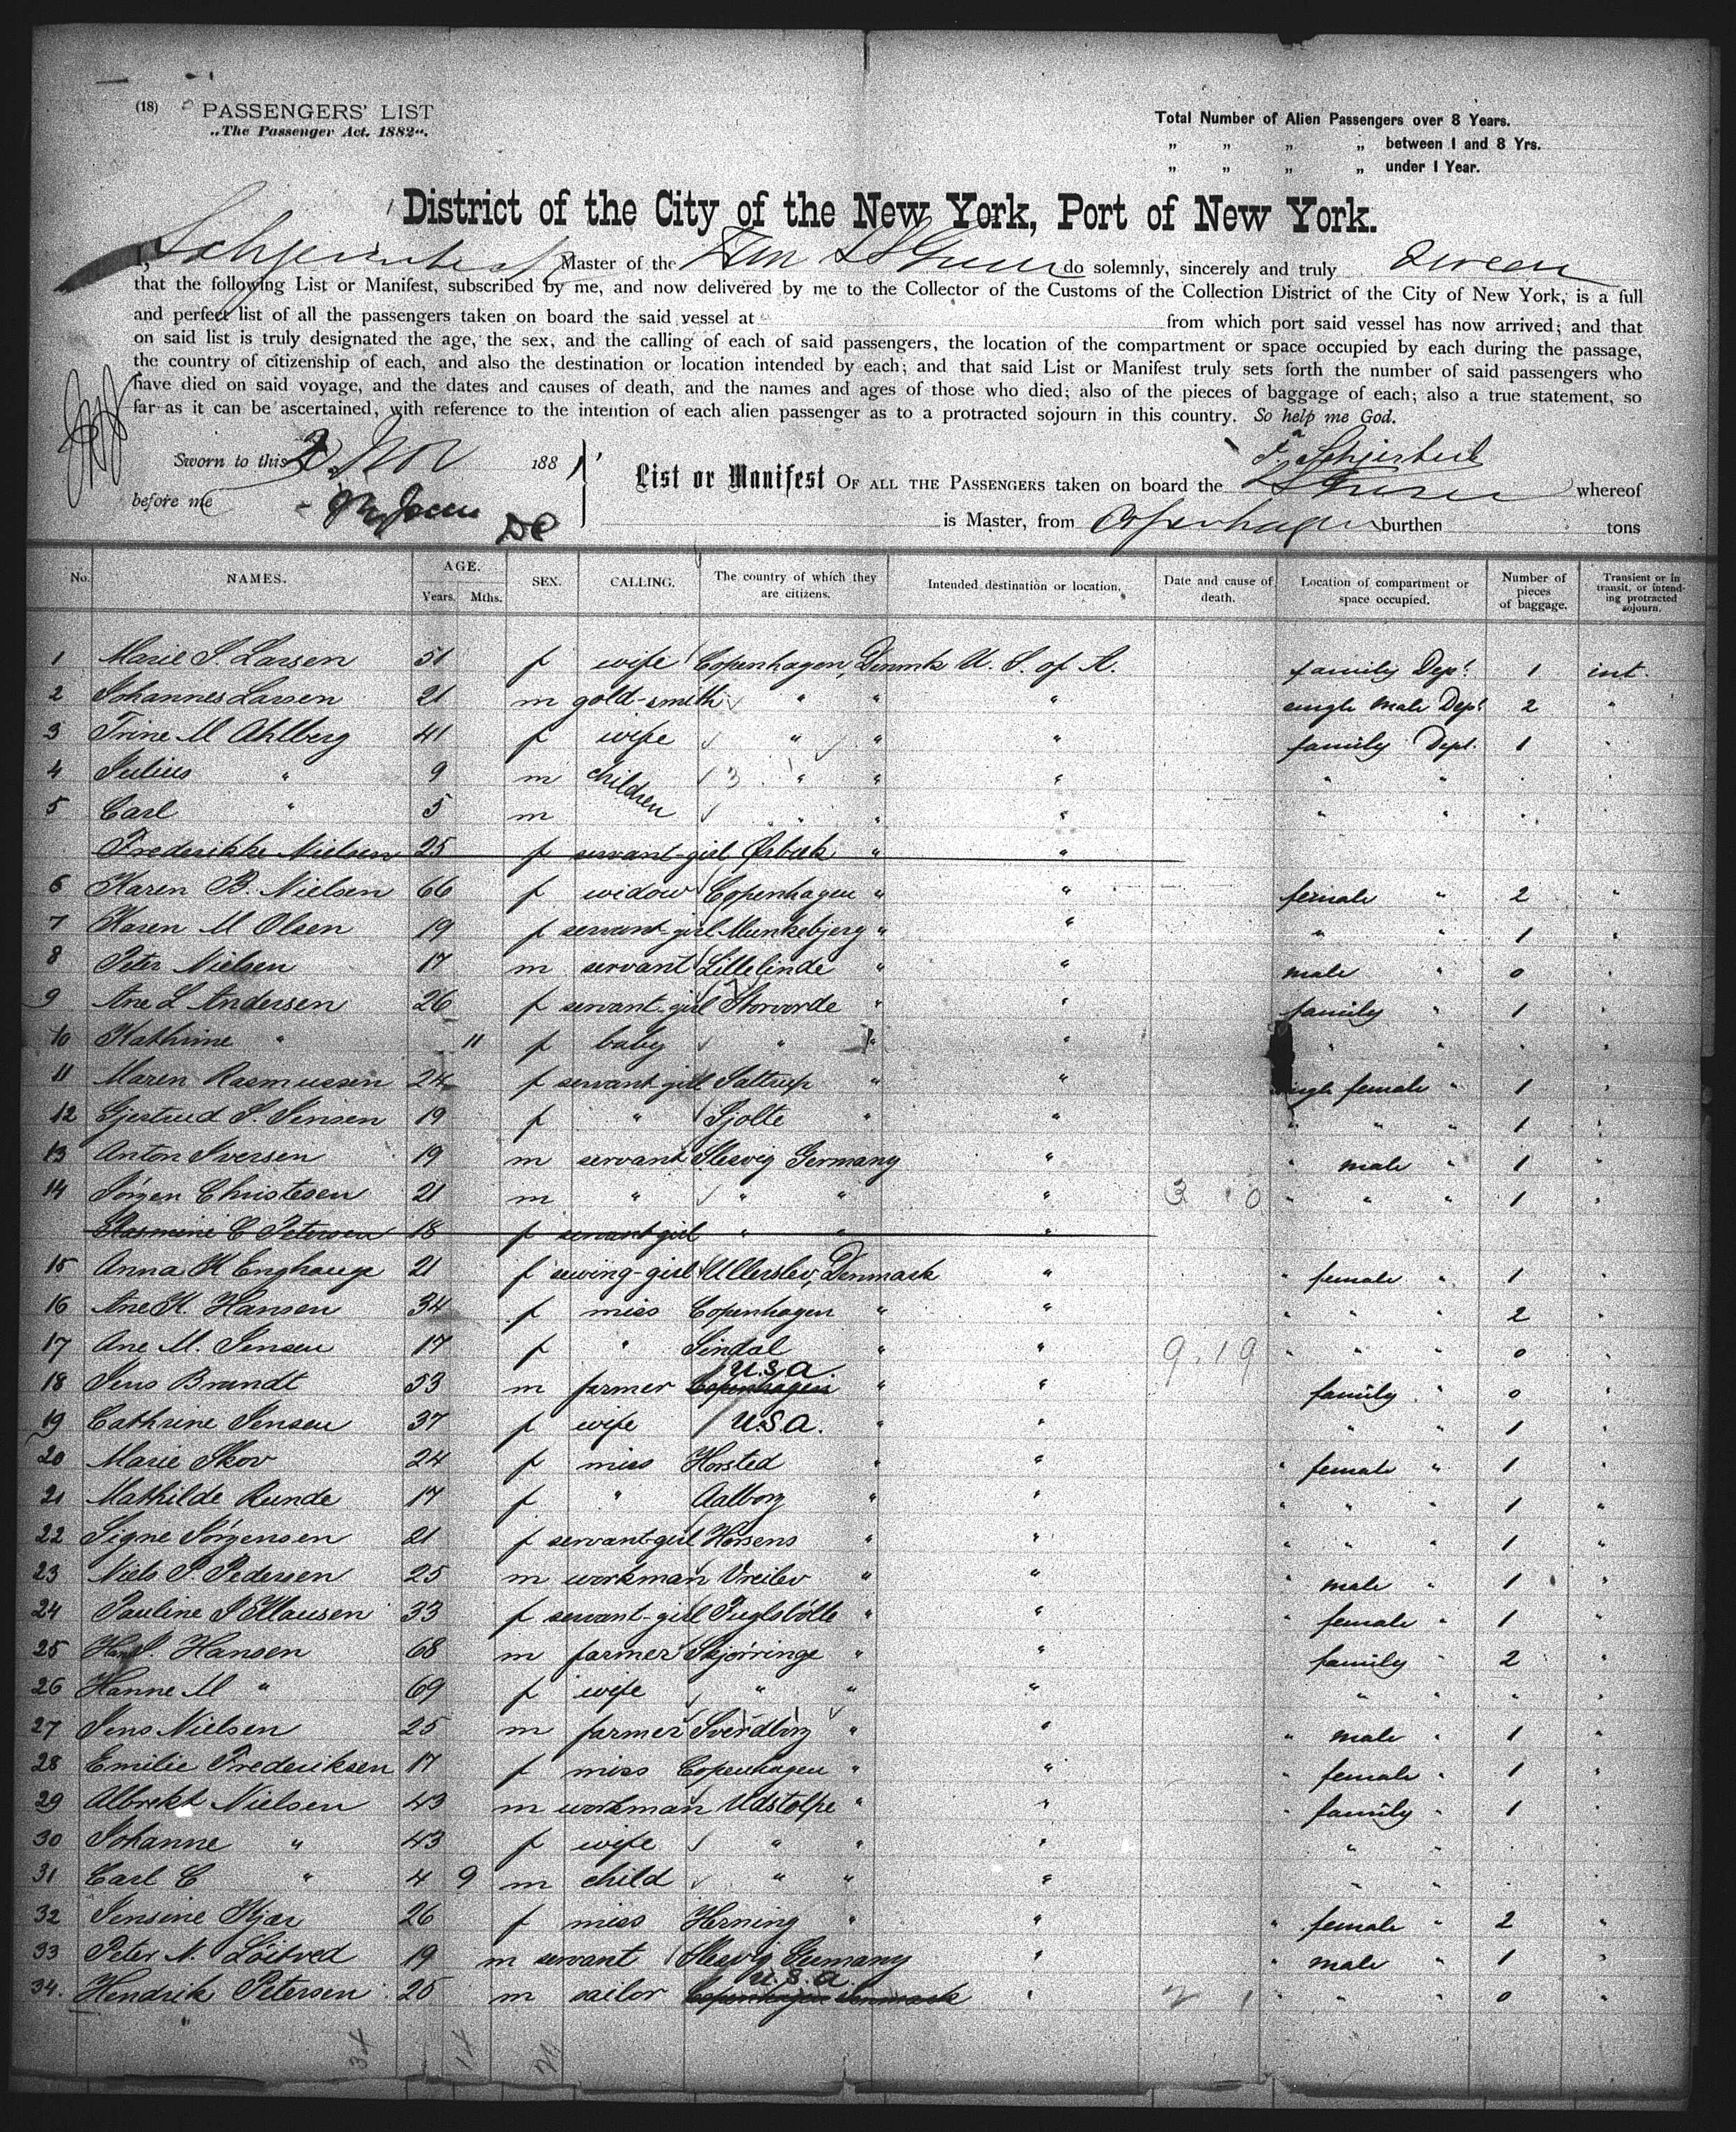 (18) PASSENGERS' LIST
„The Passenger Act. 1882“.
Total Number of Alien Passengers over 8 Years.
„ „ „ „ between 1 and 8 Yrs.
„ „ „ „ under 1 Year.
District of the City of the New York, Port of New York.
I, Master of the do solemnly, sincerely and truly swear
that the following List or Manifest, subscribed by me, and now delivered by me to the Collector of the Customs of the Collection District of the City of New York, is a full
and perfect list of all the passengers taken on board the said vessel at from which port said vessel has now arrived; and that
on said list is truly designated the age, the sex, and the calling of each of said passengers, the location of the compartment or space occupied by each during the passage,
the country of citizenship of each, and also the destination or location intended by each; and that said List or Manifest truly sets forth the number of said passengers who
have died on said voyage, and the dates and causes of death, and the names and ages of those who died; also of the pieces of baggage of each; also a true statement, so
far as it can be ascertained, with reference to the intention of each alien passenger as to a protracted sojourn in this country. So help me God.
Sworn to this Nov 188
before me
List or Manifest OF ALL THE PASSENGERS taken on board the whereof
is Master, from Copenhagen burthen tons
No. NAMES. AGE. Years. Mths. SEX. CALLING. The country of which they are citizens. Intended destination or location. Date and cause of death. Location of compartment or space occupied. Number of pieces of baggage. Transient or in transit, or intending protracted sojourn.
1 Marie S. Larsen 51 f wife Copenhagen, Denmk U. S. of A. family Dept. 1 int.
2 Johannes Larsen 21 m gold-smith " " " single male Dept 2 "
3 Trine M Ahlberg 41 f wife " " " family Dept. 1 "
4 Julius " 9 m children 3 " " " " "
5 Carl " 5 m " " " " "
Frederikke Nielsen 25 f servant-girl Ørbæk " "
6 Karen B. Nielsen 66 f widow Copenhagen " " female " 2 "
7 Karen M Olsen 19 f servant-girl Munkebjerg " " " " 1 "
8 Peter Nielsen 17 m servant Lillelinde " " male " 0 "
9 Ane L Andersen 26 f servant-girl Storvorde " " family " 1 "
10 Kathrine " 11 f baby " " " " " " "
11 Maren Rasmussen 24 f servant-girl Sattrup " " single female " 1 "
12 Gjertrud S. Jensen 19 f " Sjolte " " " " " 1 "
13 Anton Iversen 19 m servant Slesvig Germany " " male " 1 "
14 Jörgen Christesen 21 m " " " " 3 0 " " " 1 "
Rasmine C Petersen 18 f servant-girl " " "
15 Anna K Enghauge 21 f sewing-girl Ullerslev, Denmark " " female " 1 "
16 Ane K. Hansen 34 f miss Copenhagen " " " " " 2 "
17 Ane M. Jensen 17 f " Sindal " " 9.19 " " " 0 "
18 Jens Brandt 53 m farmer Copenhagen U.S.A. " " family " 0 "
19 Cathrine Jensen 37 f wife U.S.A. " " " " 1 "
20 Marie Skov 24 f miss Horsted " " " female " 1 "
21 Mathilde Runde 17 f " Aalborg " " " " " 1 "
22 Signe Jörgensen 21 f servant-girl Horsens " " " " " 1 "
23 Niels P. Pedersen 25 m workman Vreilev " " " male " 1 "
24 Pauline Hansen 33 f servant-girl Fuglsbölle " " " female " 1 "
25 Hans Hansen 68 m farmer Skjörringe " " family " 2 "
26 Hanne M " 69 f wife " " " " " " "
27 Jens Nielsen 25 m farmer Sverdborg " " " male " 1 "
28 Emilie Frederiksen 17 f miss Copenhagen " " " female " 1 "
29 Albrekt Nielsen 43 m workman Udstolpe " " " family " 1 "
30 Johanne " 43 f wife " " " " "
31 Carl C " 4 9 m child " " " " "
32 Jensine Kjær 26 f miss Herning " " " female " 2 "
33 Peter N. Löitved 19 m servant Slesvig Germany " " male " 1 "
34. Hendrik Petersen 25 m sailor Copenhagen Denmark U.S.A. " 2 1 " " " 0 "
34 14 20